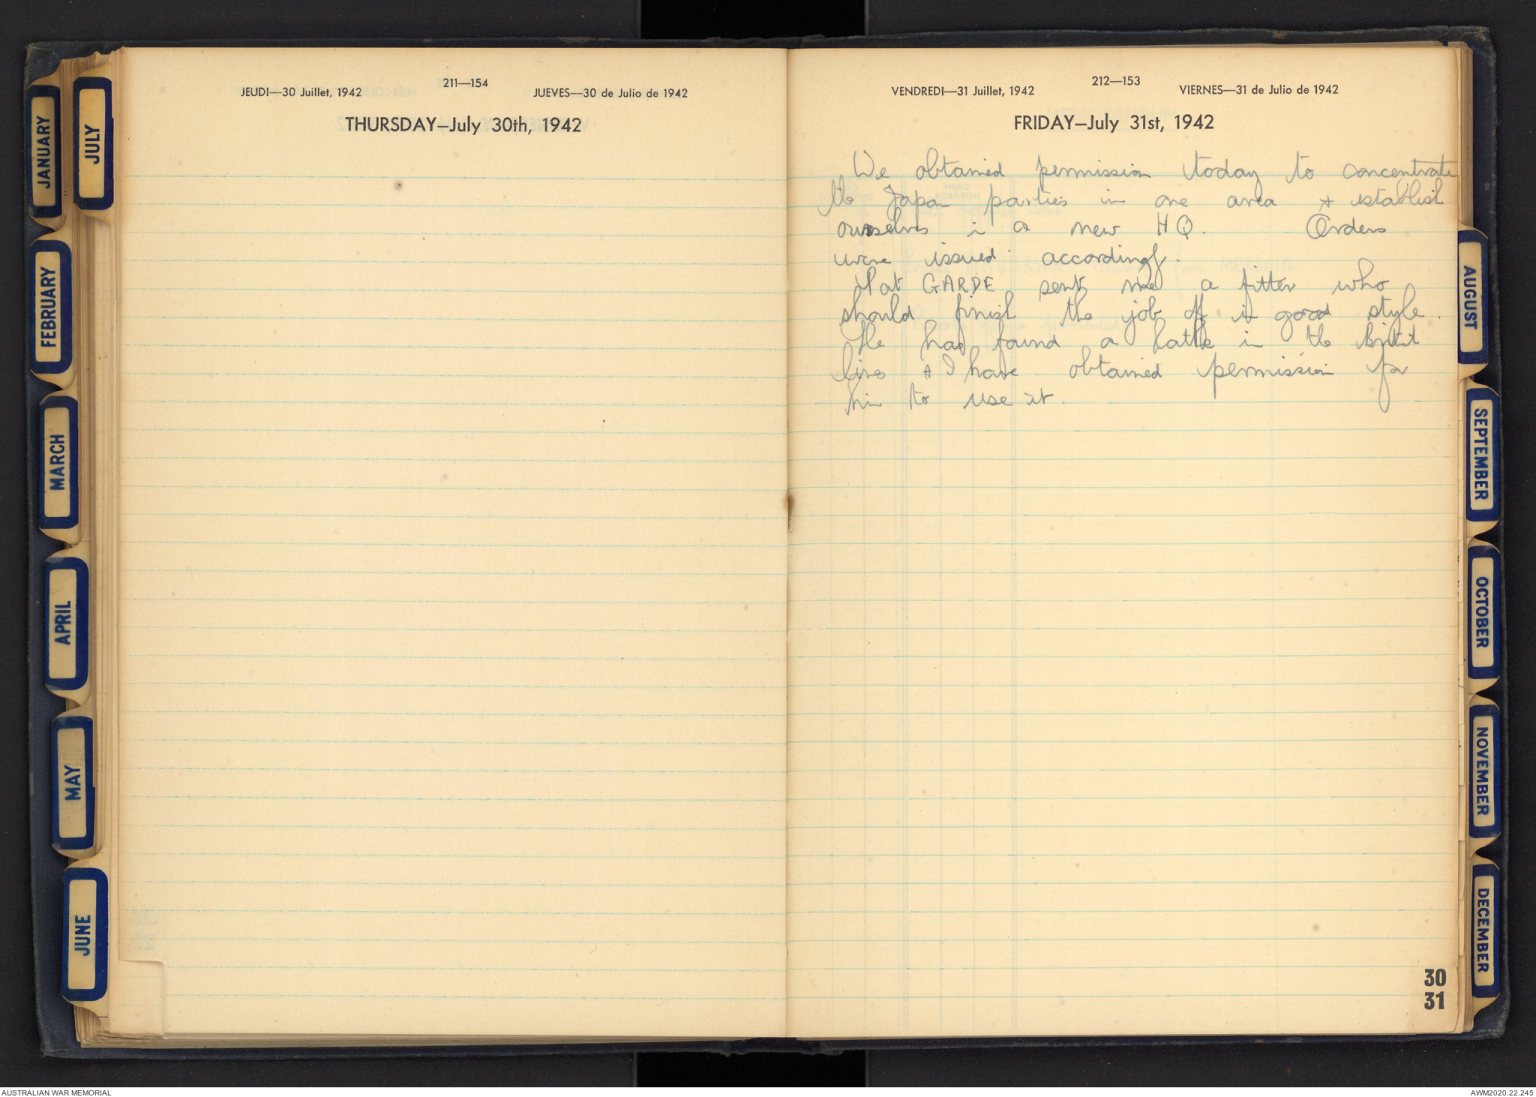 JANUARY
FEBRUARY
MARCH
APRIL
MAY
JUNE
JULY
JEUDI—30 Juillet, 1942
211—154
JUEVES—30 de Julio de 1942
THURSDAY—July 30th, 1942
VENDREDI—31 Juillet, 1942
212—153
VIERNES—31 de Julio de 1942
FRIDAY—July 31st, 1942
We obtained permission today to concentrate
the Japan parties in one area & establish
ourselves in a new HQ. Orders
were issued accordingly.
Pat GARDE sent me a fitter who
should finish the job off in good style.
He had found a lathe in the British
lines & I have obtained permission for
him to use it.
30
31
AUGUST
SEPTEMBER
OCTOBER
NOVEMBER
DECEMBER
AUSTRALIAN WAR MEMORIAL
AWM2020.22.245